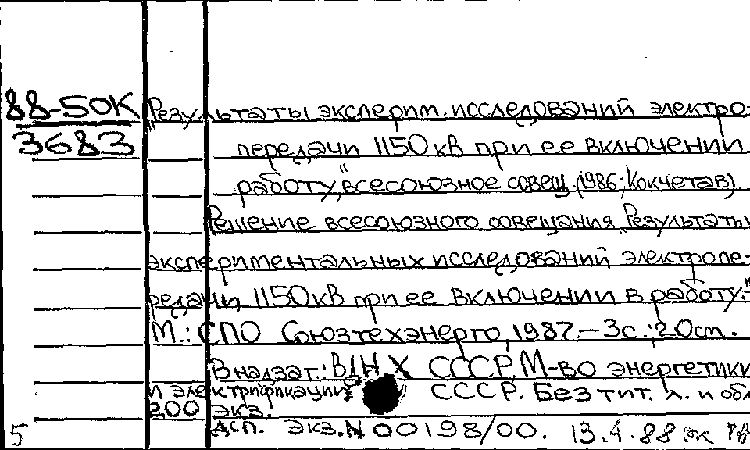 88-50К
3683
„Результаты эксперим. исследований электро-
передачи 1150 кВ при ее включении
работу", всесоюзное совещ. (1986; Кокчетав).
Решение всесоюзного совещания „Результаты
экспериментальных исследований электропе-
редачи 1150 кВ при ее включении в работу".-
М.: СПО Союзтехэнерго, 1987.- 3с.; 20см.
В надзаг.: ВДНХ СССР, М-во энергетики
и электрификации СССР. Без тит. л. и обл
200 экз.
ДСП. Экз. N 00198/00. 13.4.88
5